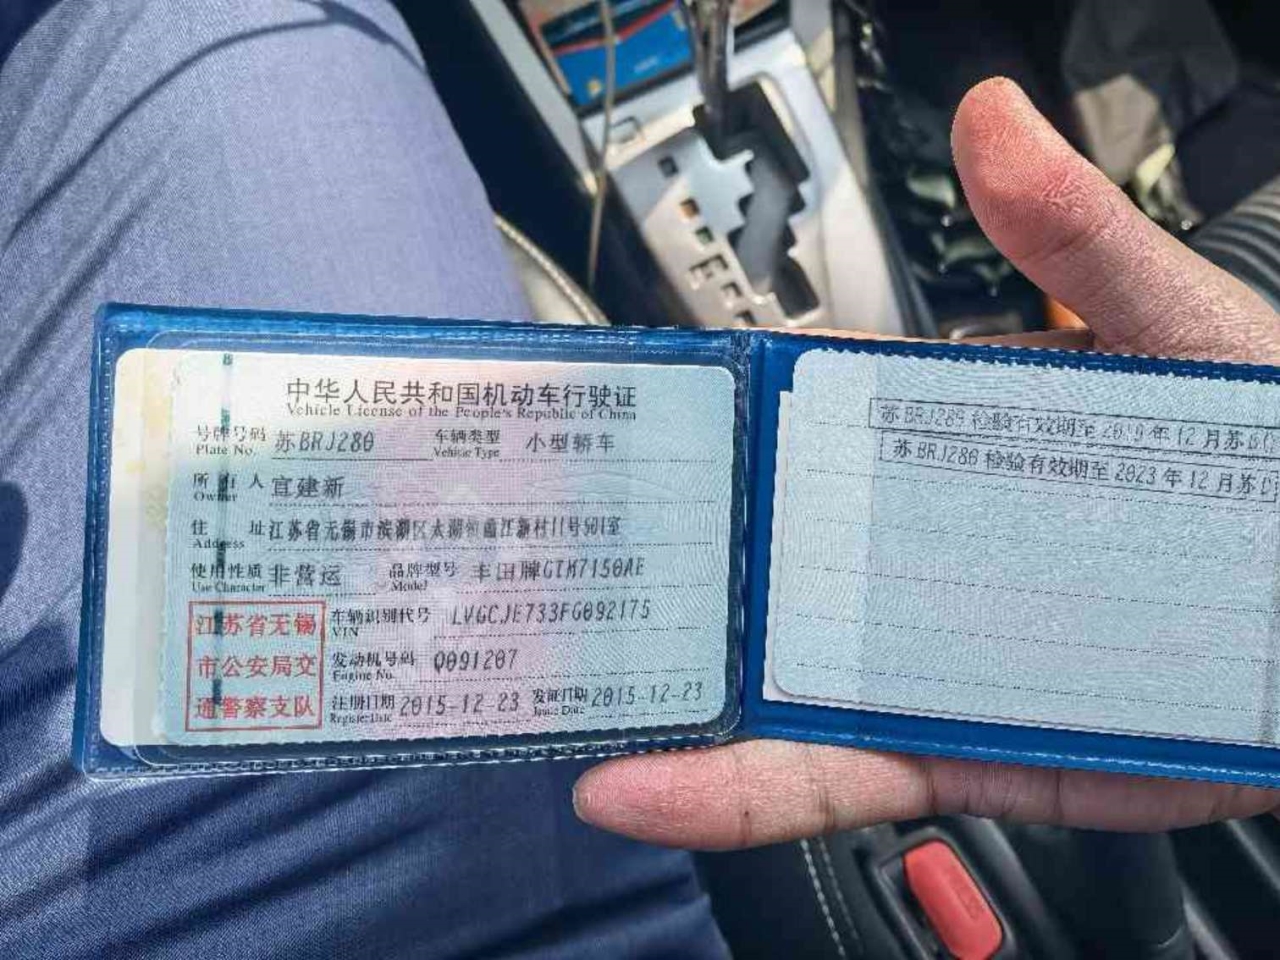 中华人民共和国机动车行驶证
Vehicle License of the People's Republic of China
号牌号码 苏BRJ280 车辆类型 小型轿车
Plate No. Vehicle Type
所有人 宣建新
Owner
住 址 江苏省无锡市滨湖区太湖街道江新村11号501室
Address
使用性质 非营运 品牌型号 丰田牌GTM7150AE
Use Character Model
江苏省无锡
市公安局交
通警察支队
车辆识别代号 LVGCJE733FG092175
VIN
发动机号码 Q091207
Engine No.
注册日期 2015-12-23 发证日期 2015-12-23
Register Date Issue Date
苏BRJ280 检验有效期至 年12月苏B
苏BRJ280 检验有效期至 2023年12月苏